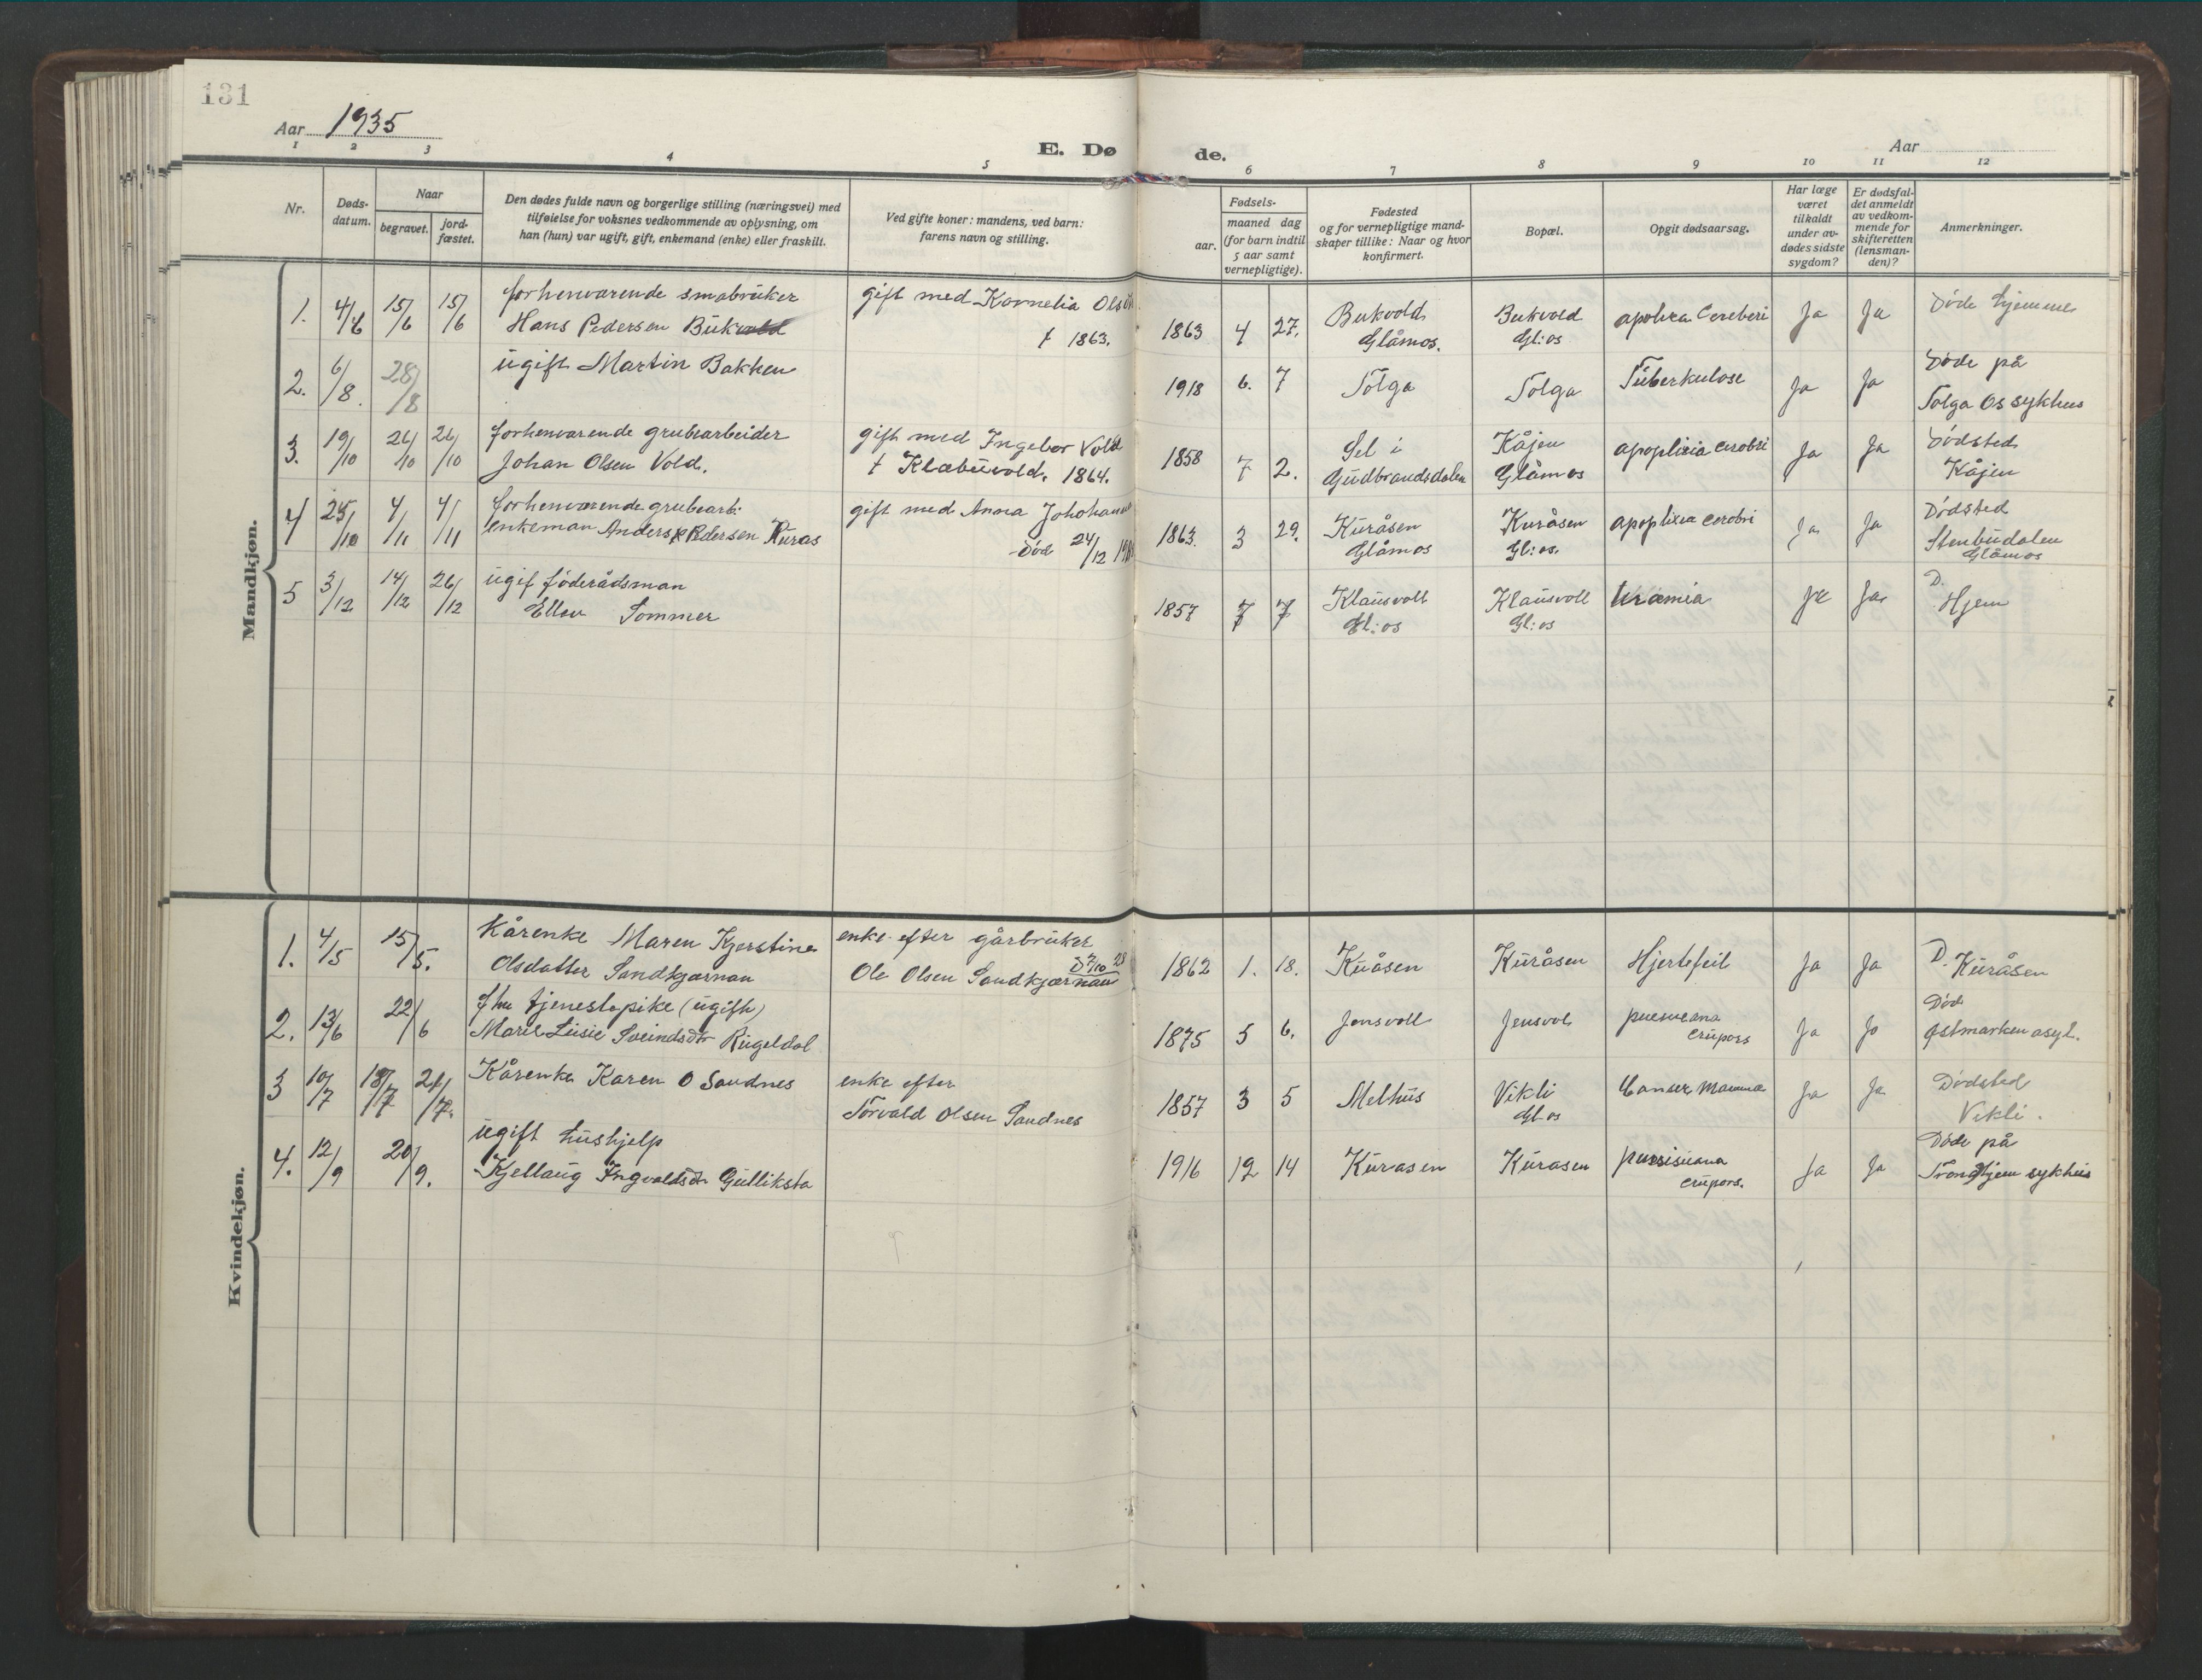 131
Aar 1935
E. Dø de.
Aar
1 2 3 4 5 6 7 8 9 10 11 12
Nr.
Døds-
datum.
Naar
begravet.
jord-
fæstet.
Den dødes fulde navn og borgerlige stilling (næringsvei) med
tilføielse for voksnes vedkommende av oplysning, om
han (hun) var ugift, gift, enkemand (enke) eller fraskilt.
Ved gifte koner: mandens, ved barn:
farens navn og stilling.
Fødsels-
aar.
maaned dag
(for barn indtil
5 aar samt
vernepligtige).
Fødested
og for vernepligtige mand-
skaper tillike: Naar og hvor
konfirmert.
Bopæl.
Opgit dødsaarsag.
Har læge
været
tilkaldt
under av-
dødes sidste
sygdom?
Er dødsfal-
det anmeldt
av vedkom-
mende for
skifteretten
(lensman-
den)?
Anmerkninger.
Mandkjøn.
1. 4/6 15/6 15/6 forhenværende småbrüker
Hans Pedersen Bükvold
gift med Kornelia Olsd
f 1863.
1863 4 27. Bukvold
Glåmos.
Bukvold
Gl:os
apolexa Cereberi Ja Ja Døde hjemme
2. 6/8. 28/8 ügift Martin Bakken
1918 6. 7 Tolga Tolga Tüberkulose Ja Ja Døde på
Tolga Os sykhus
3. 19/10 26/10 26/10 forhenværende grubearbeider
Johan Olsen Vold.
gift med Ingebor Vold
f Klæbüvold. 1864.
1858 7 2. Sel i
Güdbrandsdalen
Kåjen
Glåmos
apoplixia cerobri Ja Ja Dødsted
Kåjen
4 25/10 4/11 4/11 forhenværende grubearb:
enkeman Anders Pedersen Kurås
gift med Anna Johohan
Død 24/12
1863. 3 29. Küråsen
Glåmos
Kuråsen
Gl:os.
apoplixia cerobri Ja Ja Dødsted
Stenbüdalen
Glåmos
5 3/12 14/12 26/12 ügif föderådsman
Ellev Sommer
1857 7 7 Klaüsvoll
Gl:os
Klaüsvoll
Gl:os
Uræmia Ja Ja D.
Hjem
Kvindekjøn.
1. 4/5 15/5. Kårenke Maren Kjerstine
Olsdatter Sandkjærnan
enke efter gårbrüker
Ole Olsen Sandkjærnan D 7/10 28
1862 1. 18. Küåsen Küråsen Hjertefeil Ja Ja D. Küråsen
2. 13/6 22/6 fhv tjenestepike (ügift)
Maret Lüsie Sveindsdtr Rügeldal
1875 5 6. Jensvoll Jensvol
crüpors Ja Ja Død
Østmarken asyl.
3 10/7 18/7 21/7. Kårenke Karen O Sandnes
enke efter
Torvald Olsen Sandnes
1857 3 5 Melhüs Vikli
Gl.os
Canser Mamma Ja Ja Dødsted
Vikli.
4. 12/9 20/9. ügift hüshjelp
Kjellaüg Ingvaldsdtr Gülliksta
1916 12 14 Kürasen Kürasen
crüpors. Ja Ja Døde på
Trondhjem sykhüs